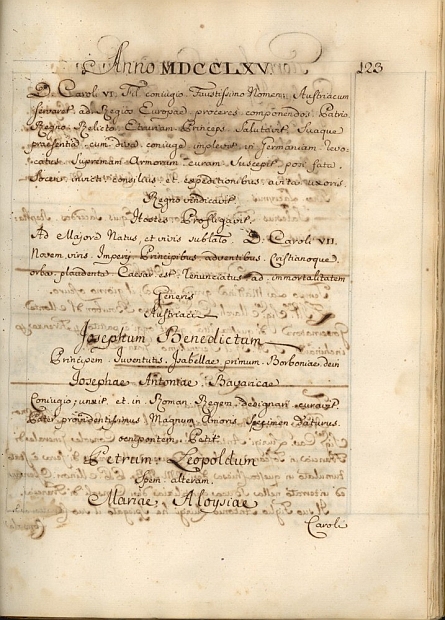 Anno MDCCLXV 123
D. Caroli VI. Fil. coniugio Faustissimo Nomen Austriacum
servaret ad Regios Europae proceres componendos Patrio
Regno Relicto Etruriam Princeps Salutavit Suaque
praesentia cum diva coniuge implevit in Germaniam revo-
catus Supremam Armorum curam Suscepit post fata
Soceri invicti consiliis et expeditionibus avita uxoris
Regna vindicavit
Hostes Profligavit
Ad Majora Natus, et vivis sublato D. Caroli VII.
Novem viris Imperij Principibus adventibus Cristianoque
orbe plaudente Caesar est renunciatus ad immortalitatem
Generis
Austriaci
Josephum Benedictum
Principem Iuventutis Isabellae primum Borboniae dein
Josephae Antoniae Bavaricae
Coniugio iunxit et in Roman. Regem designari curavit
Pater providentissimus Magnum Amoris Specimen daturus
Oenipontem Petit
Petrum Leopoldum
Spem alteram
Mariae Aloysiae
Caroli